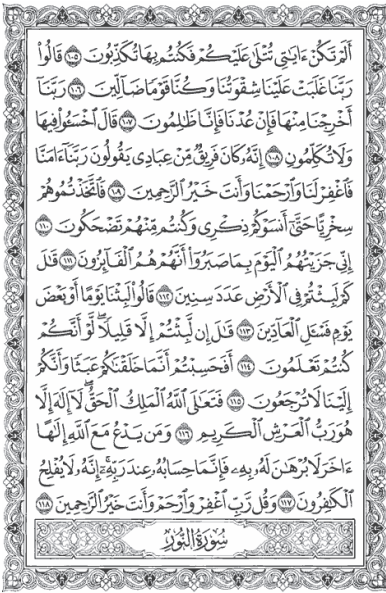 أَلَمْ تَكُنْ ءَايَـٰتِى تُتْلَىٰ عَلَيْكُمْ فَكُنتُم بِهَا تُكَذِّبُونَ ١٠٥ قَالُوا۟
رَبَّنَا غَلَبَتْ عَلَيْنَا شِقْوَتُنَا وَكُنَّا قَوْمًا ضَآلِّينَ ١٠٦ رَبَّنَآ
أَخْرِجْنَا مِنْهَا فَإِنْ عُدْنَا فَإِنَّا ظَـٰلِمُونَ ١٠٧ قَالَ ٱخْسَـُٔوا۟ فِيهَا
وَلَا تُكَلِّمُونِ ١٠٨ إِنَّهُۥ كَانَ فَرِيقٌ مِّنْ عِبَادِى يَقُولُونَ رَبَّنَآ ءَامَنَّا
فَٱغْفِرْ لَنَا وَٱرْحَمْنَا وَأَنتَ خَيْرُ ٱلرَّٰحِمِينَ ١٠٩ فَٱتَّخَذْتُمُوهُمْ
سِخْرِيًّا حَتَّىٰٓ أَنسَوْكُمْ ذِكْرِى وَكُنتُم مِّنْهُمْ تَضْحَكُونَ ١١٠
إِنِّى جَزَيْتُهُمُ ٱلْيَوْمَ بِمَا صَبَرُوٓا۟ أَنَّهُمْ هُمُ ٱلْفَآئِزُونَ ١١١ قَـٰلَ
كَمْ لَبِثْتُمْ فِى ٱلْأَرْضِ عَدَدَ سِنِينَ ١١٢ قَالُوا۟ لَبِثْنَا يَوْمًا أَوْ بَعْضَ
يَوْمٍ فَسْـَٔلِ ٱلْعَآدِّينَ ١١٣ قَـٰلَ إِن لَّبِثْتُمْ إِلَّا قَلِيلًا لَّوْ أَنَّكُمْ
كُنتُمْ تَعْلَمُونَ ١١٤ أَفَحَسِبْتُمْ أَنَّمَا خَلَقْنَـٰكُمْ عَبَثًا وَأَنَّكُمْ
إِلَيْنَا لَا تُرْجَعُونَ ١١٥ فَتَعَـٰلَى ٱللَّهُ ٱلْمَلِكُ ٱلْحَقُّ لَآ إِلَـٰهَ إِلَّا
هُوَ رَبُّ ٱلْعَرْشِ ٱلْكَرِيمِ ١١٦ وَمَن يَدْعُ مَعَ ٱللَّهِ إِلَـٰهًا
ءَاخَرَ لَا بُرْهَـٰنَ لَهُۥ بِهِۦ فَإِنَّمَا حِسَابُهُۥ عِندَ رَبِّهِۦٓ إِنَّهُۥ لَا يُفْلِحُ
ٱلْكَـٰفِرُونَ ١١٧ وَقُل رَّبِّ ٱغْفِرْ وَٱرْحَمْ وَأَنتَ خَيْرُ ٱلرَّٰحِمِينَ ١١٨
سُورَةُ النُّورِ